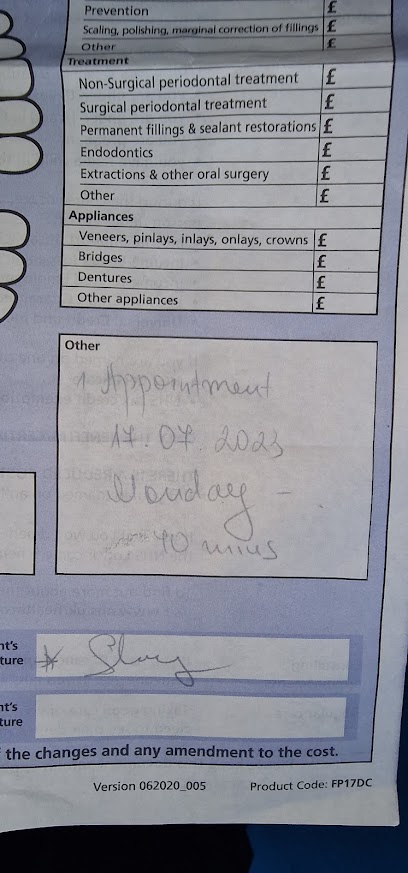 Prevention £
Scaling, polishing, marginal correction of fillings £
Other £
Treatment
Non-Surgical periodontal treatment £
Surgical periodontal treatment £
Permanent fillings & sealant restorations £
Endodontics £
Extractions & other oral surgery £
Other £
Appliances
Veneers, pinlays, inlays, onlays, crowns £
Bridges £
Dentures £
Other appliances £
Other
1 Appointment
17.07.2023
Monday -
40 mins
nt's
ture *
nt's
ture
the changes and any amendment to the cost.
Version 062020_005 Product Code: FP17DC